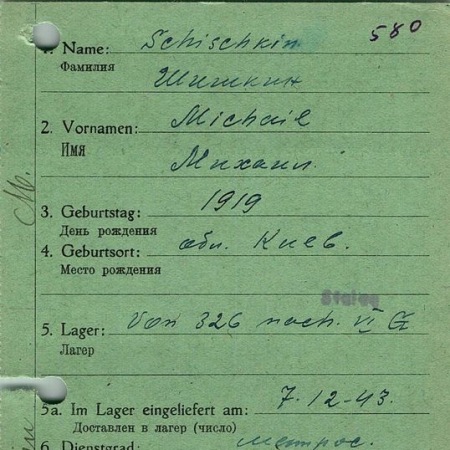 580
1. Name: Schischkin
Фамилия
Шишкин
2. Vornamen: Michail
Имя
Михаил.
3. Geburtstag: 1919
День рождения
4. Geburtsort: обл. Киев.
Место рождения
Stalag
5. Lager: Von 326 nach. VI G
Лагер
5a. Im Lager eingeliefert am: 7.12-43.
Доставлен в лагер (число)
6. Dienstgrad: матрос.